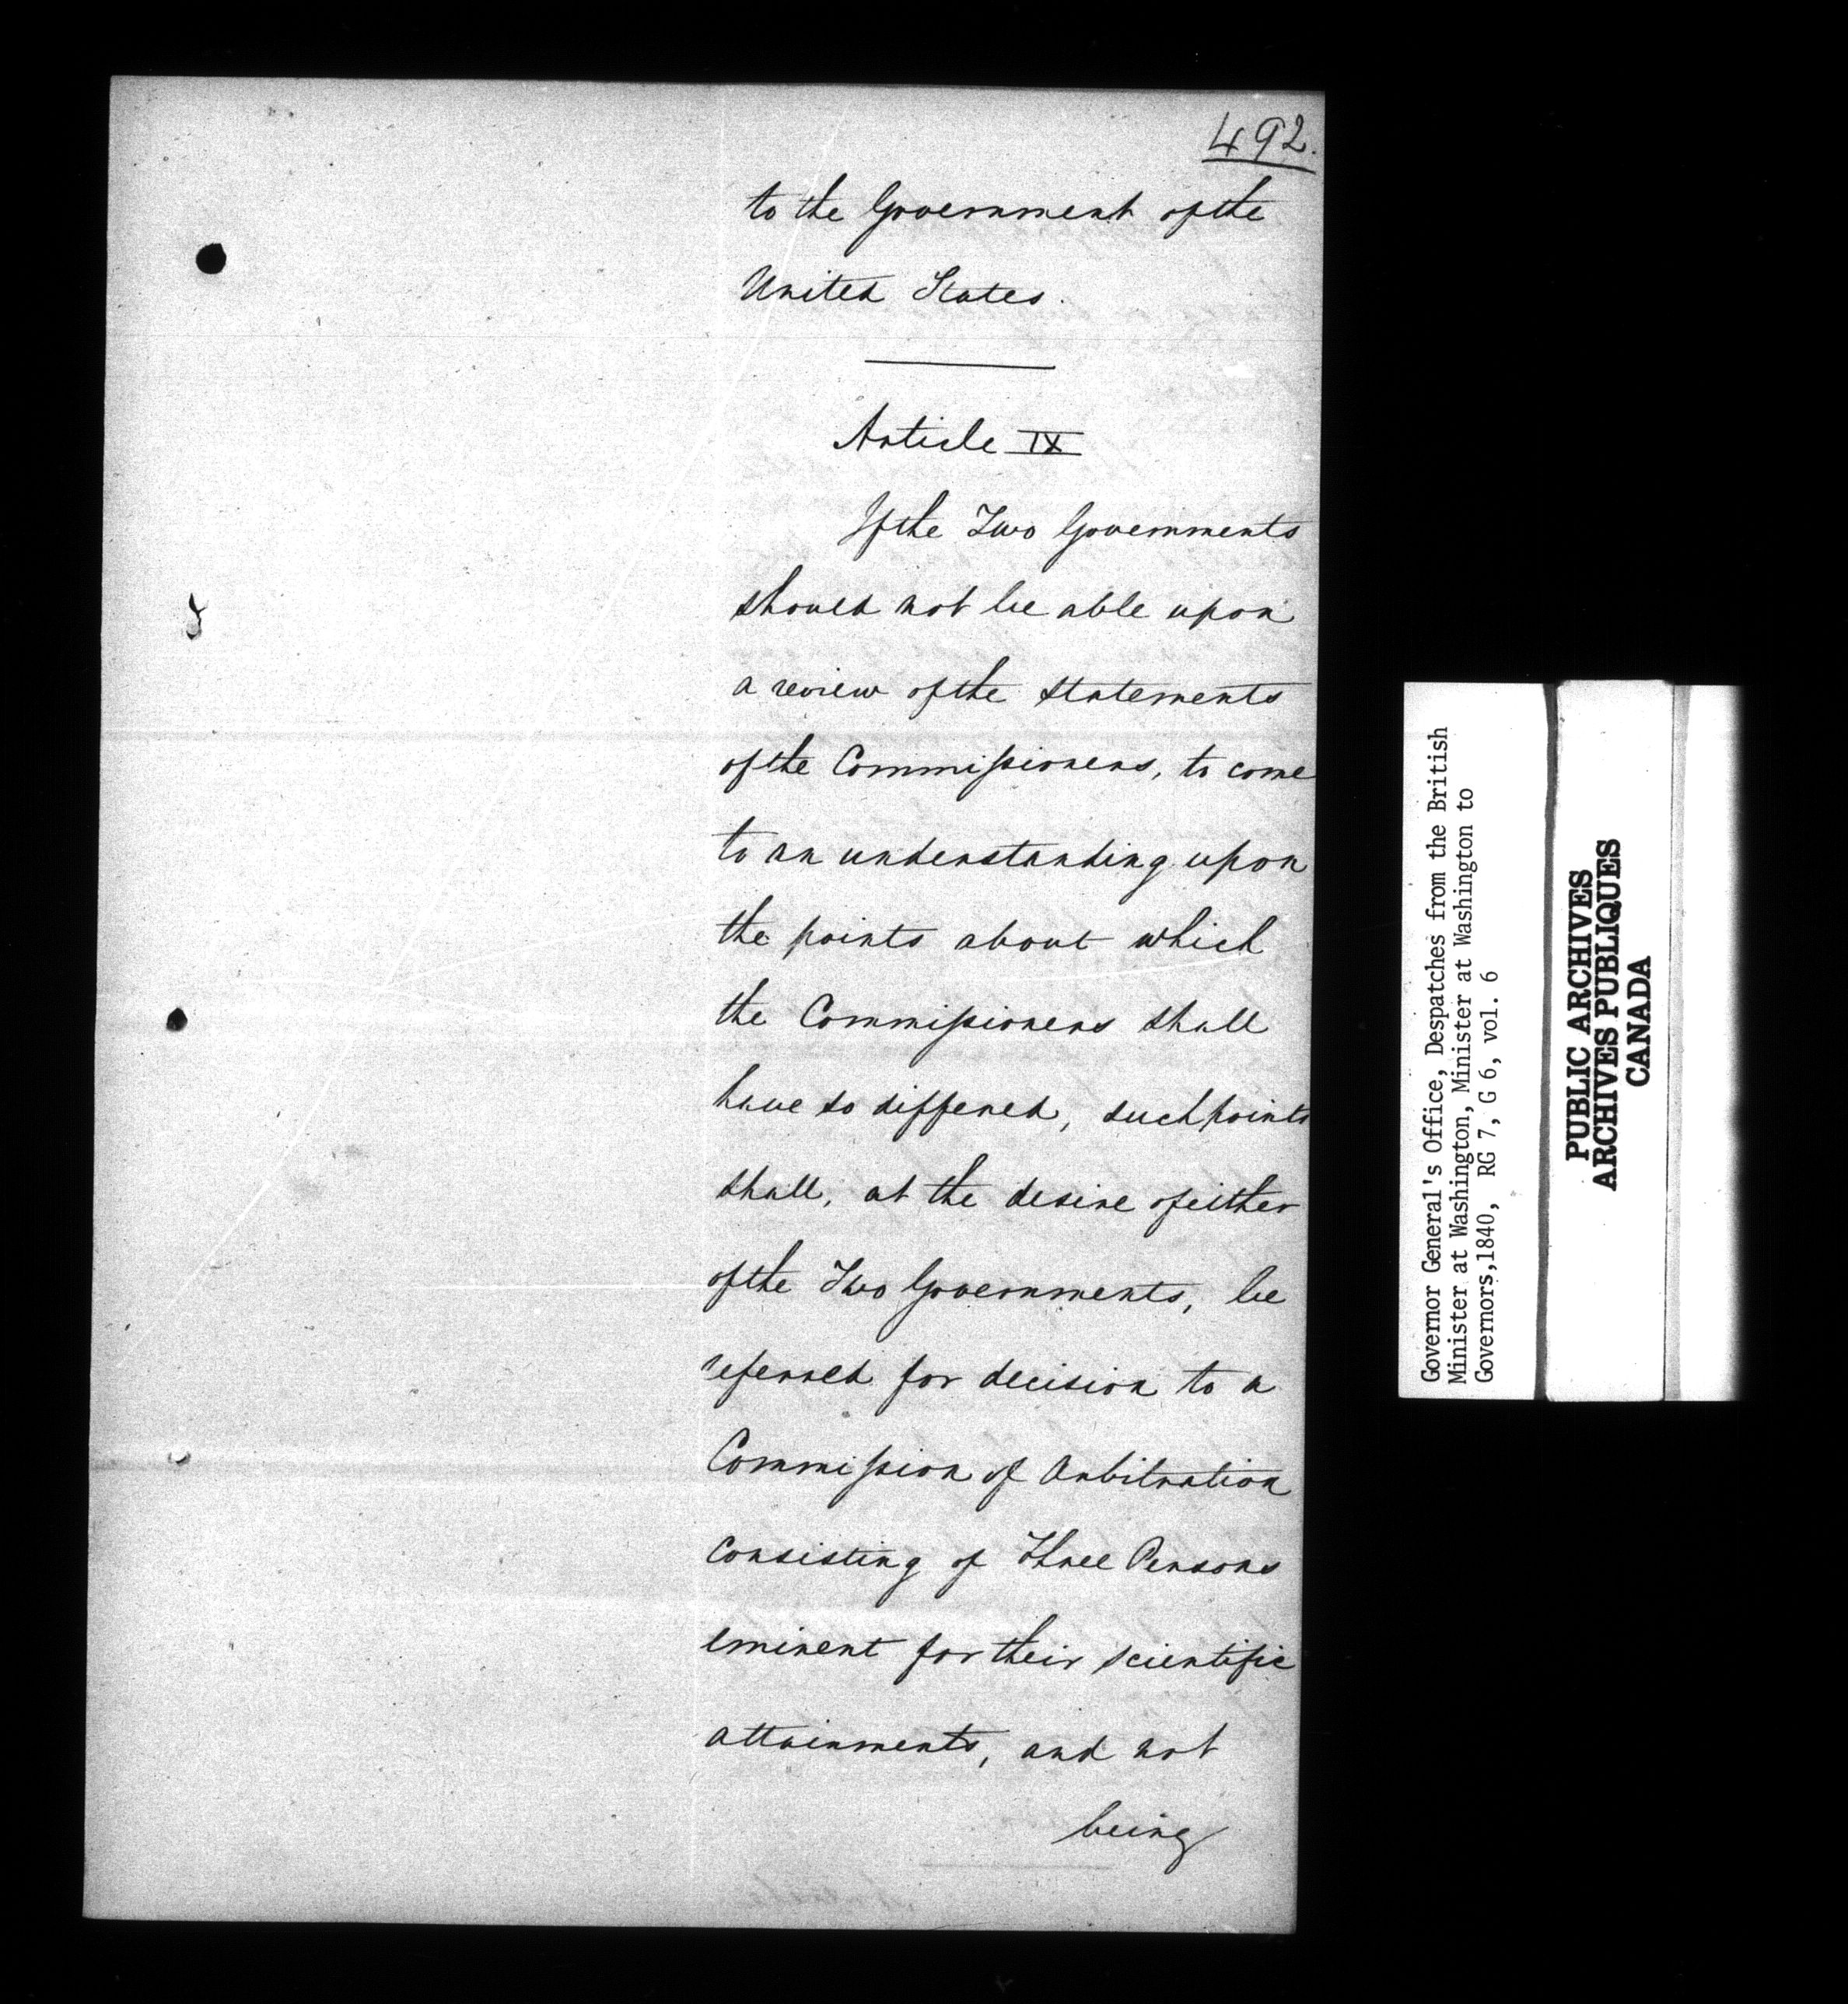 492.
to the Government of the
United States.
Article IX
If the Two Governments
should not be able upon
a review of the statements
of the Commissioners, to come
to an understanding upon
the points about which
the Commissioners shall
have so differed, such points
shall, at the desire of either
of the Two Governments, be
referred for decision to a
Commission of Arbitration
consisting of Three Persons
eminent for their scientific
attainments, and not
being
Governor General's Office, Despatches from the British
Minister at Washington, Minister at Washington to
Governors,1840, RG 7, G 6, vol. 6
PUBLIC ARCHIVES
ARCHIVES PUBLIQUES
CANADA